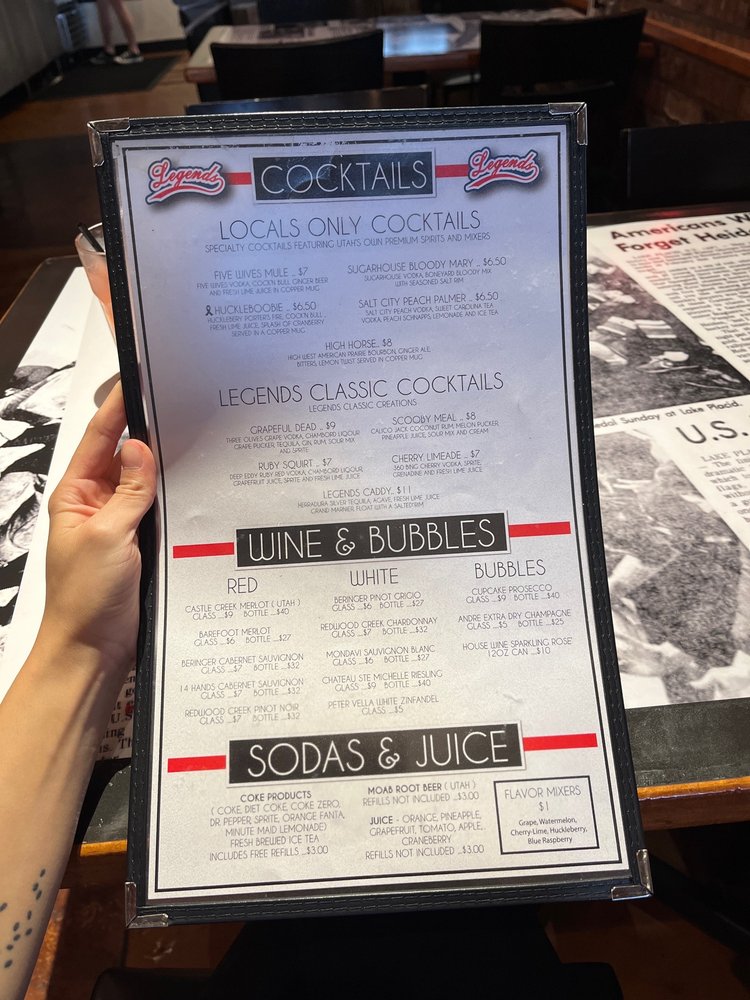 Legends
COCKTAILS
Legends
LOCALS ONLY COCKTAILS
SPECIALTY COCKTAILS FEATURING UTAH'S OWN PREMIUM SPIRITS AND MIXERS
FIVE WIVES MULE ... $7
FIVE WIVES VODKA, COCK'N BULL GINGER BEER
AND FRESH LIME JUICE IN COPPER MUG
SUGARHOUSE BLOODY MARY ... $6.50
SUGARHOUSE VODKA, BONEYARD BLOODY MIX
WITH SEASONED SALT RIM
HUCKLEBOOBIE ... $6.50
HUCKLEBERRY PORTER'S FIRE, COCK'N BULL,
FRESH LIME JUICE, SPLASH OF CRANBERRY
SERVED IN A COPPER MUG
SALT CITY PEACH PALMER ... $6.50
SALT CITY PEACH VODKA, SWEET CAROLINA TEA
VODKA, PEACH SCHNAPPS, LEMONADE AND ICE TEA
HIGH HORSE.. $8
HIGH WEST AMERICAN PRAIRIE BOURBON, GINGER ALE,
BITTERS, LEMON TWIST SERVED IN COPPER MUG
LEGENDS CLASSIC COCKTAILS
LEGENDS CLASSIC CREATIONS
GRAPEFUL DEAD ... $9
THREE OLIVES GRAPE VODKA, CHAMBORD LIQOUR
GRAPE PUCKER, TEQUILA, GIN, RUM, SOUR MIX
AND SPRITE
SCOOBY MEAL ... $8
CALICO JACK COCONUT RUM, MELON PUCKER,
PINEAPPLE JUICE, SOUR MIX AND CREAM
RUBY SQUIRT ... $7
DEEP EDDY RUBY RED VODKA, CHAMBORD LIQOUR,
GRAPEFRUIT JUICE, SPRITE AND FRESH LIME JUICE
CHERRY LIMEADE ... $7
360 BING CHERRY VODKA, SPRITE,
GRENADINE AND FRESH LIME JUICE
LEGENDS CADDY... $11
HERRADURA SILVER TEQUILA, AGAVE, FRESH LIME JUICE
GRAND MARNIER, FLOAT WITH A SALTED RIM
WINE & BUBBLES
RED
CASTLE CREEK MERLOT ( UTAH )
GLASS ....$9 BOTTLE ...$40
BAREFOOT MERLOT
GLASS ....$6 BOTTLE ...$27
BERINGER CABERNET SAUVIGNON
GLASS ....$7 BOTTLE ....$32
14 HANDS CABERNET SAUVIGNON
GLASS ....$7 BOTTLE ...$32
REDWOOD CREEK PINOT NOIR
GLASS ....$7 BOTTLE ...$32
WHITE
BERINGER PINOT GRIGIO
GLASS ....$6 BOTTLE ...$27
REDWOOD CREEK CHARDONNAY
GLASS ....$7 BOTTLE ...$32
MONDAVI SAUVIGNON BLANC
GLASS ....$6 BOTTLE ...$27
CHATEAU STE MICHELLE RIESLING
GLASS ....$9 BOTTLE ...$40
PETER VELLA WHITE ZINFANDEL
GLASS ....$5
BUBBLES
CUPCAKE PROSECCO
GLASS ....$9 BOTTLE ...$40
ANDRE EXTRA DRY CHAMPAGNE
GLASS ....$5 BOTTLE ...$25
HOUSE WINE SPARKLING ROSE'
12OZ CAN ....$10
SODAS & JUICE
COKE PRODUCTS
( COKE, DIET COKE, COKE ZERO,
DR. PEPPER, SPRITE, ORANGE FANTA,
MINUTE MAID LEMONADE)
FRESH BREWED ICE TEA
INCLUDES FREE REFILLS ...$3.00
MOAB ROOT BEER ( UTAH )
REFILLS NOT INCLUDED ...$3.00
JUICE - ORANGE, PINEAPPLE,
GRAPEFRUIT, TOMATO, APPLE,
CRANEBERRY
REFILLS NOT INCLUDED ...$3.00
FLAVOR MIXERS
$1
Grape, Watermelon,
Cherry-Lime, Huckleberry,
Blue Raspberry
Americans W
Forget Heid
edal Sunday at Lake Placid.
U.S.
LAKE PLA